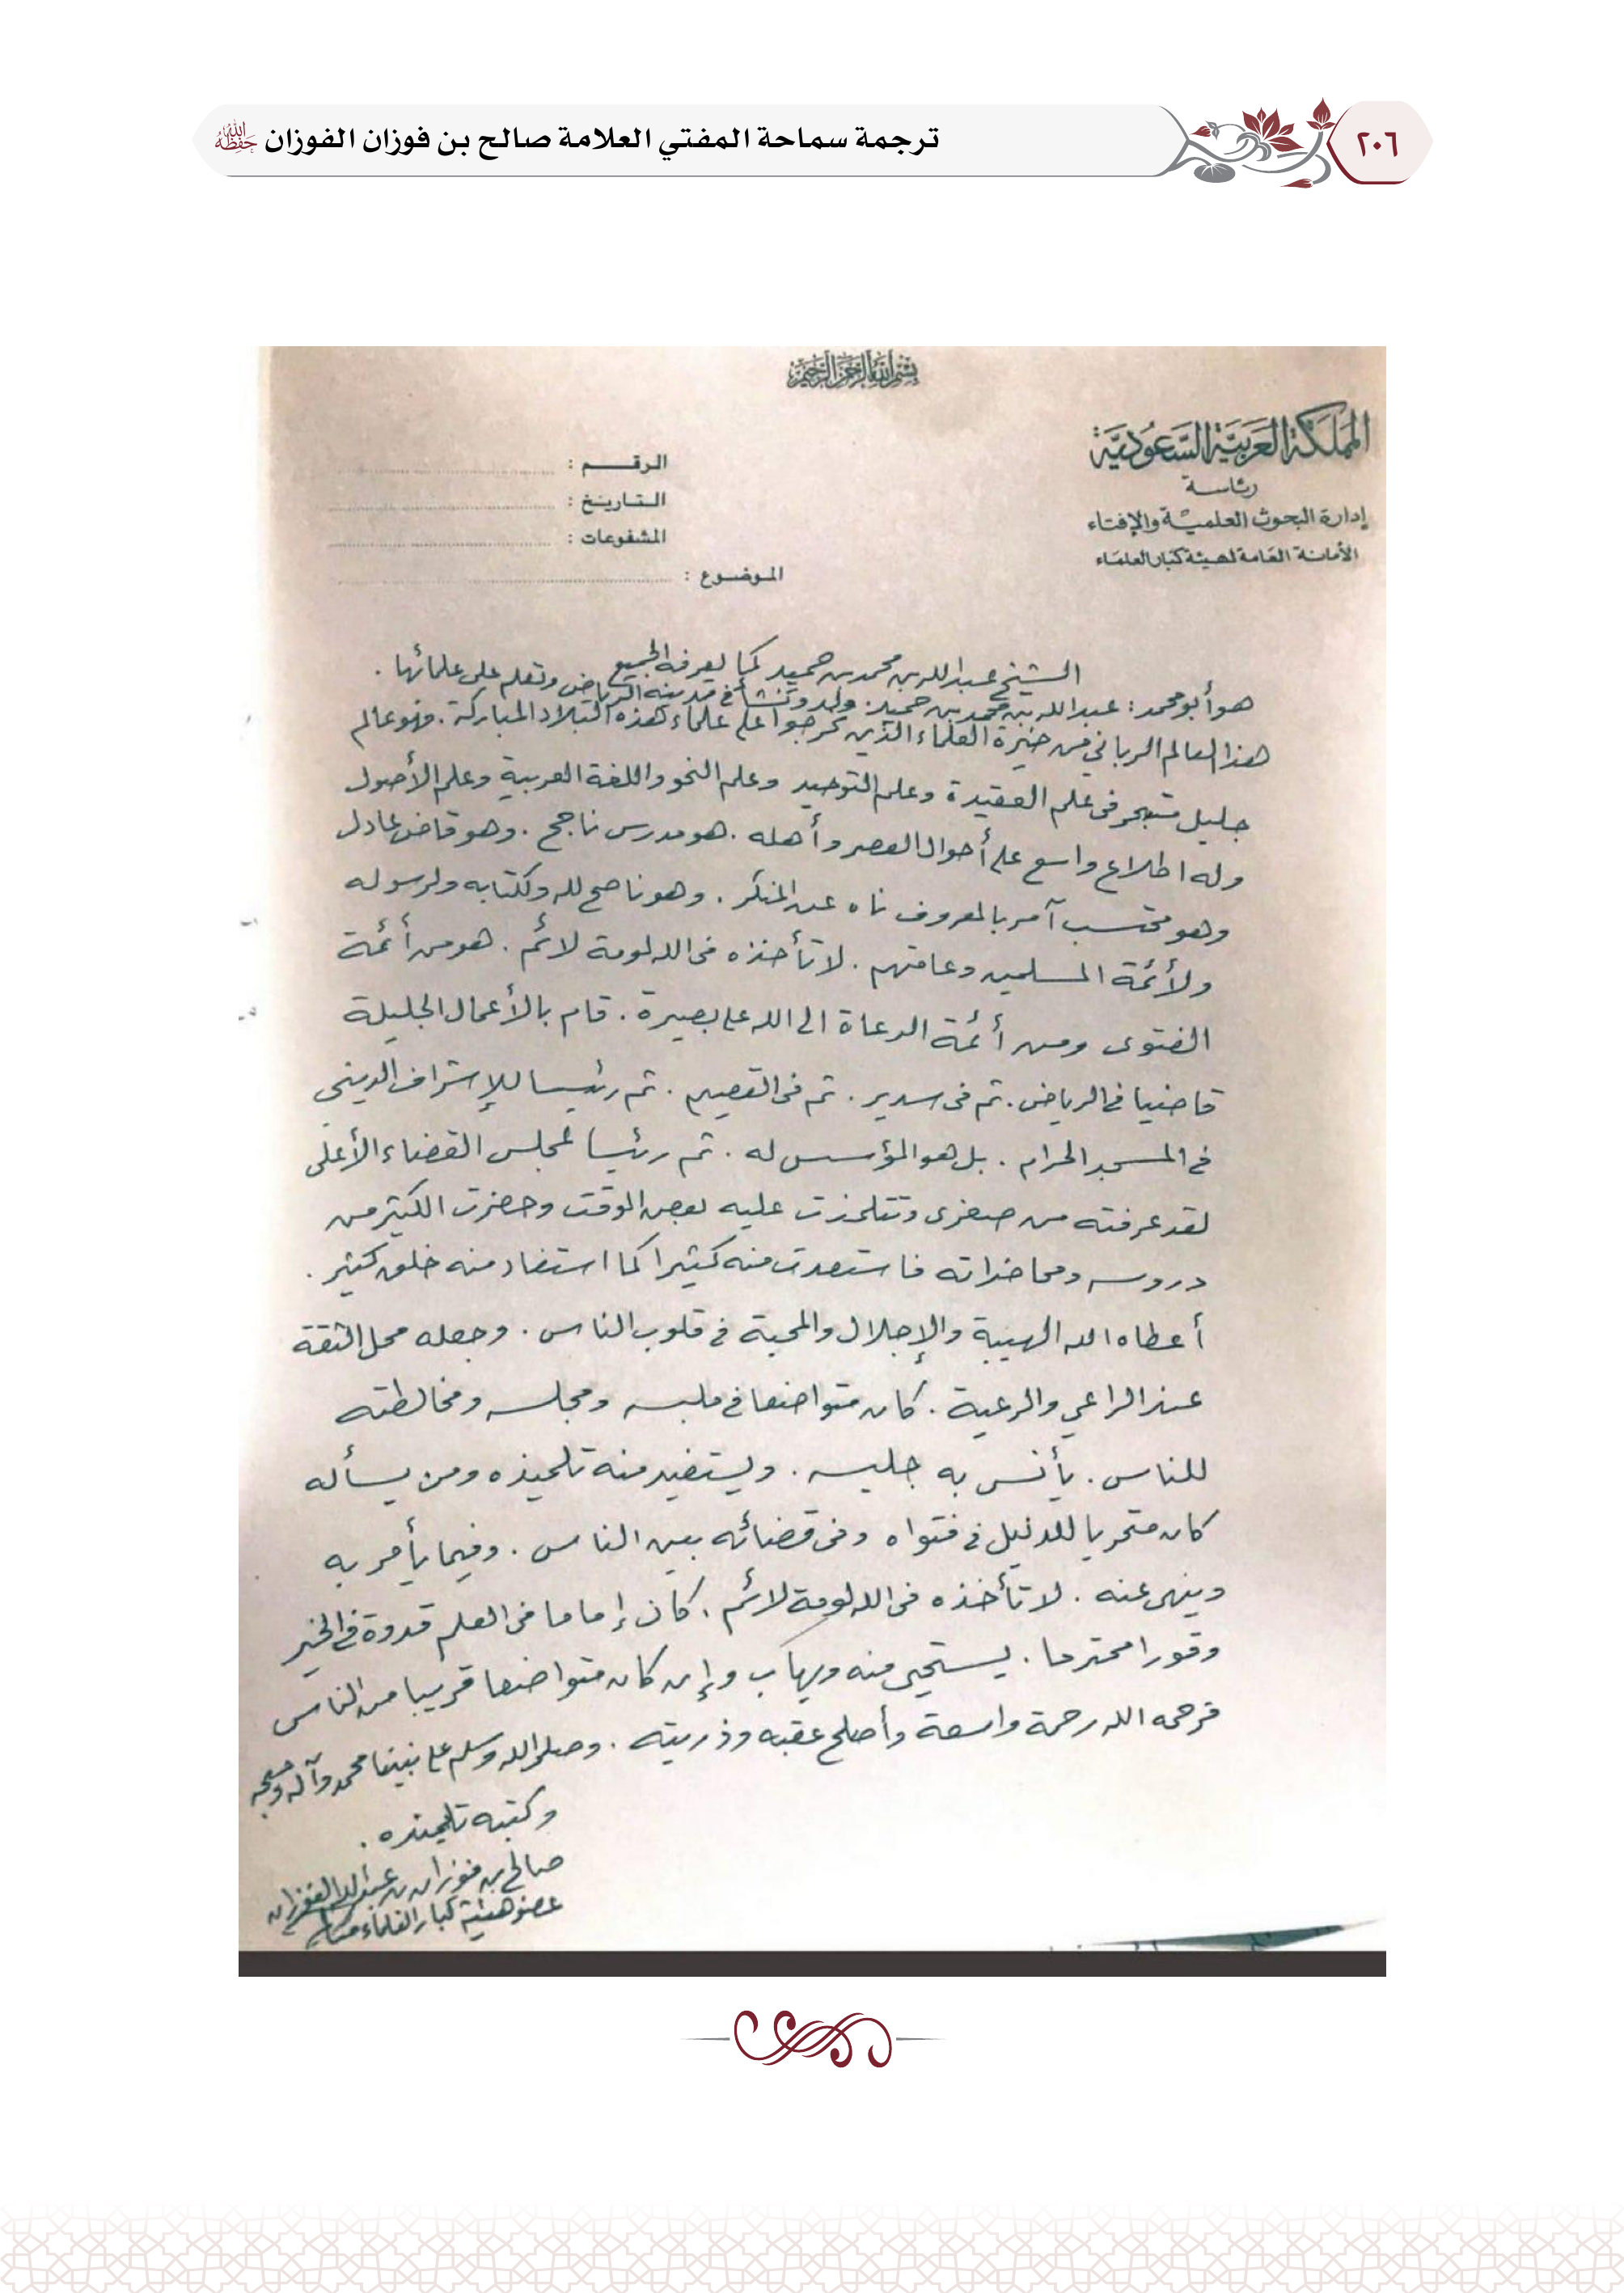 ٢٠٦
ترجمة سماحة المفتي العلامة صالح بن فوزان الفوزان حَفِظَهُ اللَّهُ
بسم الله الرحمن الرحيم
المملكة العربية السعودية
رئاسة
إدارة البحوث العلمية والإفتاء
الأمانة العامة لهيئة كبار العلماء
الرقم :
التاريخ :
المشفوعات :
الموضوع :
الشيخ عبدالله بن محمد بن حميد كما يعرفه الجميع
هو أبو محمد : عبدالله بن محمد بن حميد . ولد ونشأ في مدينة الرياض وتعلم على علمائها .
هذا العالم الرباني من خيرة العلماء الذين تخرجوا على علماء هذه البلاد المباركة . فهو عالم
جليل متبحر في علم العقيدة وعلم التوحيد وعلم النحو واللغة العربية وعلم الأصول
وله اطلاع واسع على أحوال العصر وأهله . هو مدرس ناجح . وهو قاض عادل
وهو محتسب آمر بالمعروف ناه عن المنكر . وهو ناصح لله وكتابه ولرسوله
ولأئمة المسلمين وعامتهم . لا تأخذه في الله لومة لائم . هو من أئمة
الفتوى ومن أئمة الدعاة الى الله على بصيرة . قام بالأعمال الجليلة
قاضيا في الرياض . ثم في سدير . ثم في القصيم . ثم رئيسا للإشراف الديني
في المسجد الحرام . بل هو المؤسس له . ثم رئيسا لمجلس القضاء الأعلى
لقد عرفته من صغرى وتتلمذت عليه بعض الوقت وحضرت الكثير من
دروسه ومحاضراته فاستفدت منه كثيرا كما استفاد منه خلق كثير .
أعطاه الله الهيبة والإجلال والمحبة في قلوب الناس . وجعله محل الثقة
عند الراعي والرعية . كان متواضعا في ملبسه ومجلسه ومخالطته
للناس . يأنس به جليسه . ويستفيد منه تلميذه ومن يسأله
كان متحريا للدليل في فتواه وفي قضائه بين الناس . وفيما يأمر به
وينهى عنه . لا تأخذه في الله لومة لائم . كان إماما في العلم قدوة في الخير
وقورا محترما . يستحيى منه ويهاب وإن كان متواضعا قريبا من الناس
فرحمه الله رحمة واسعة وأصلح عقبه وذريته . وصلى الله وسلم على نبينا محمد وآله وصحبه
وكتبه تلميذه .
صالح بن فوزان بن عبدالله الفوزان
عضو هيئة كبار العلماء